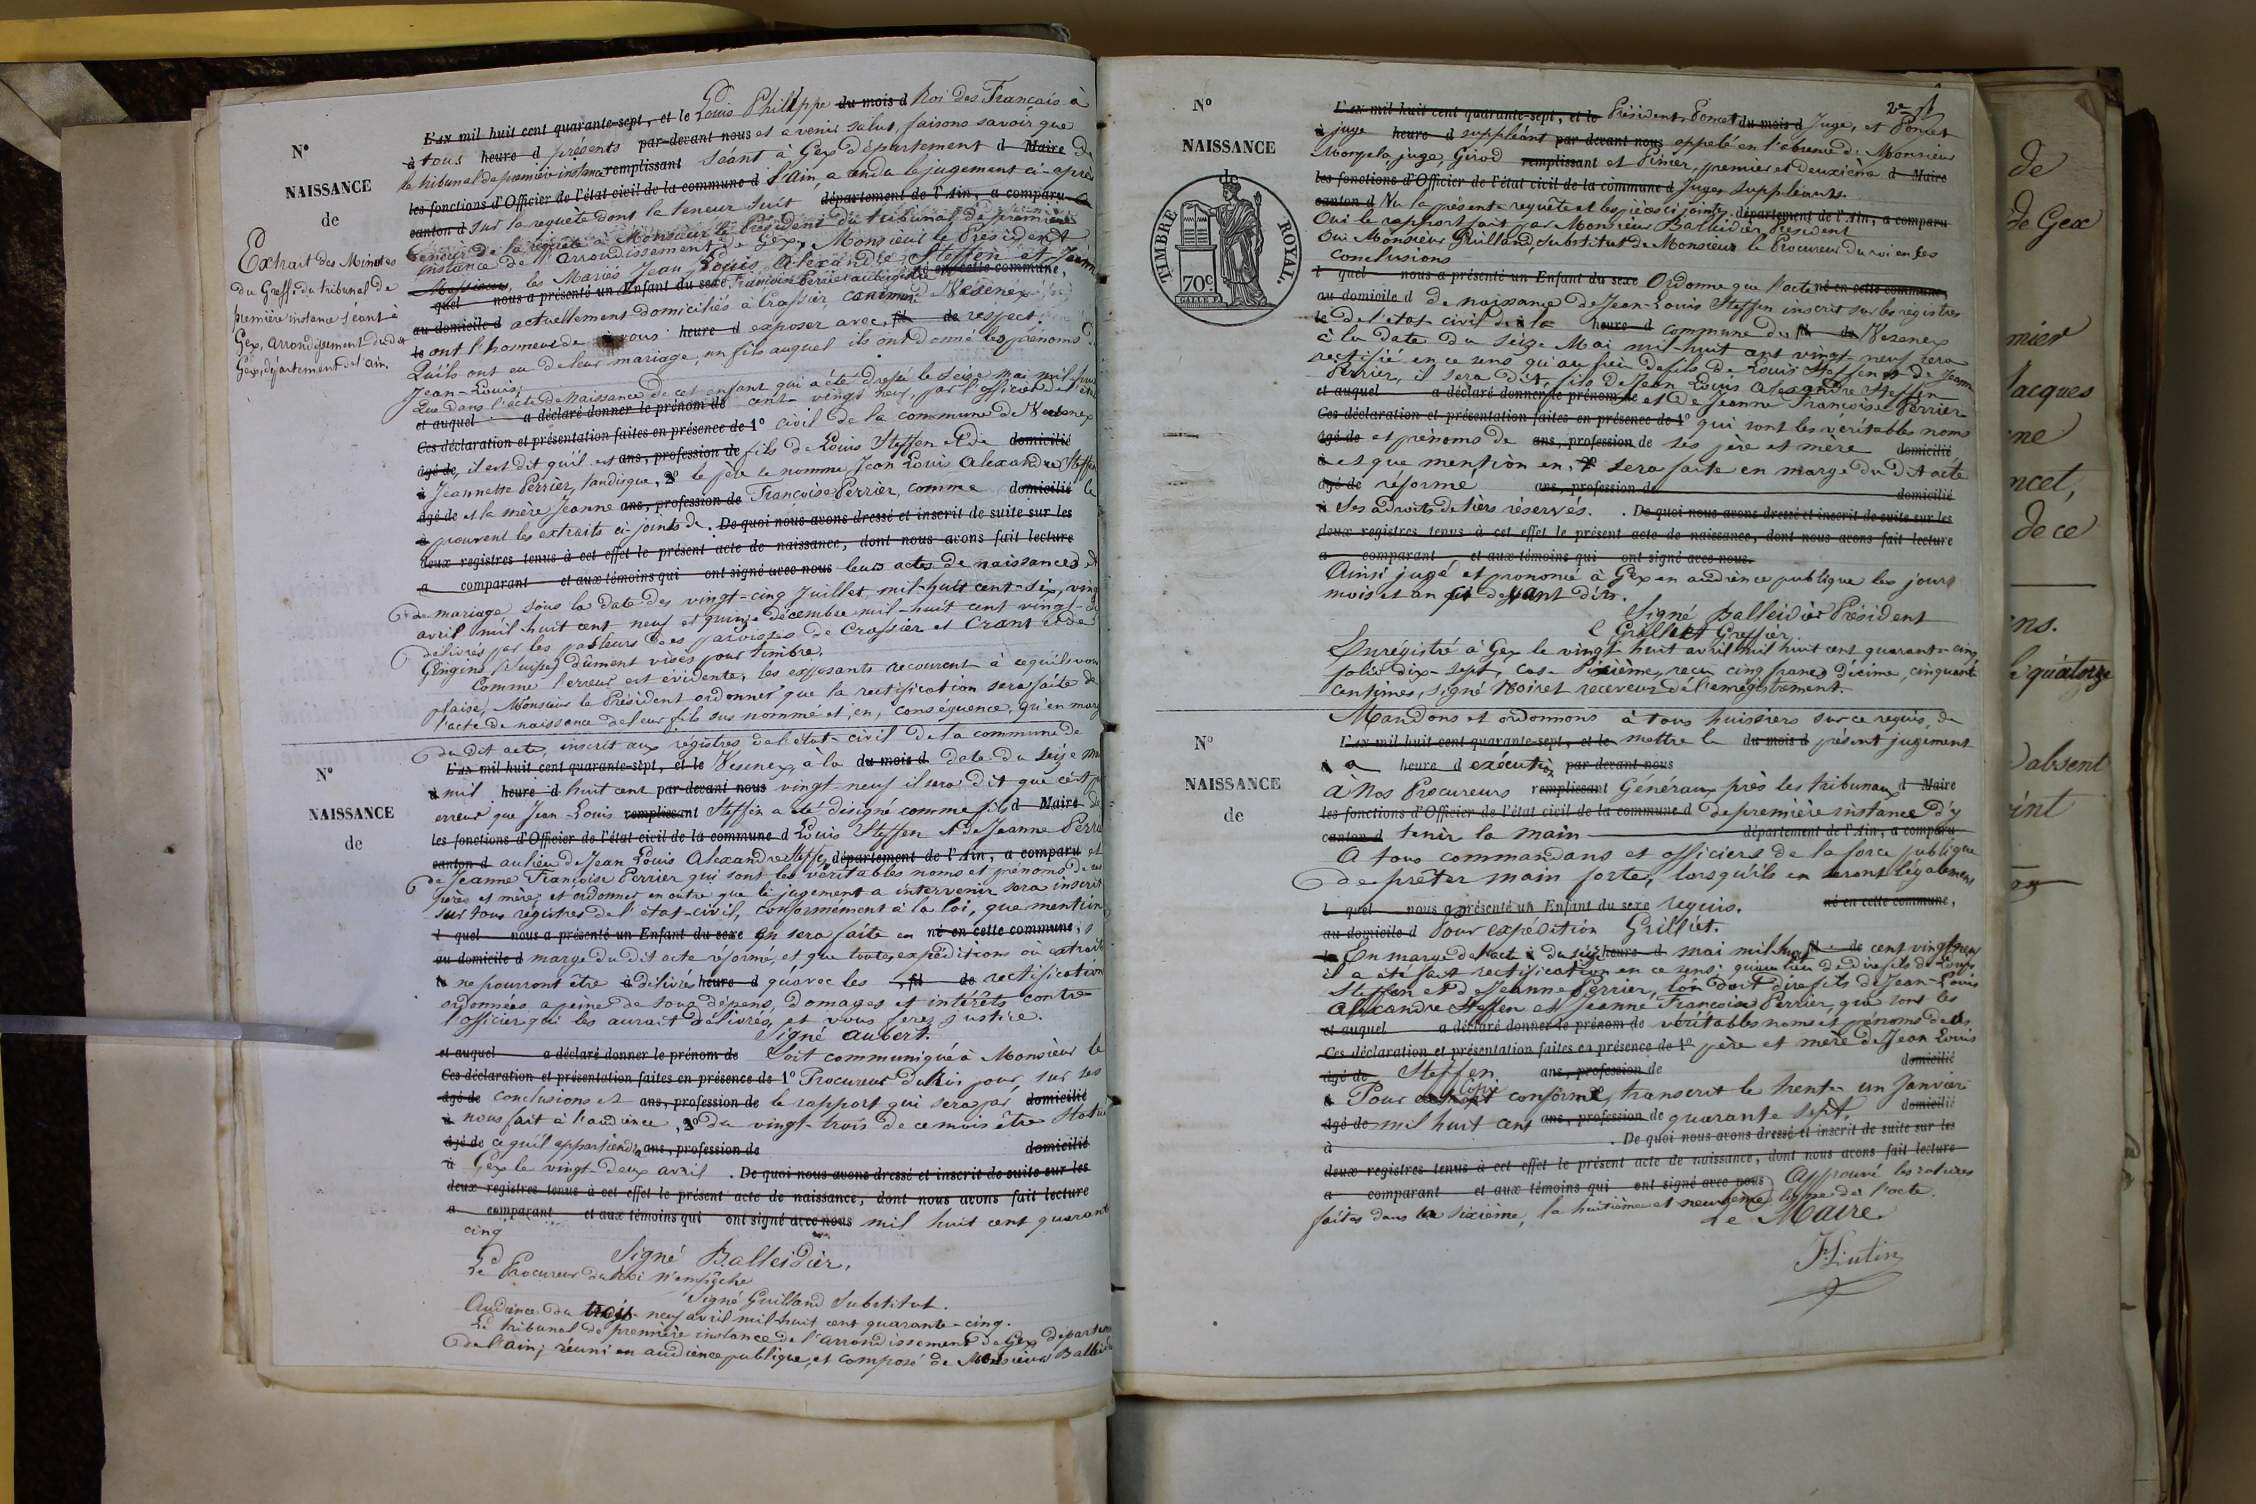 N°
NAISSANCE
de
Extrait des Minutes
du Greffe du tribunal de
première instance séant à
Gex, arrondissement du dit
Gex, département de l'ain.
L'an mil huit cent quarante-sept, et le Louis Philippe du mois d Roi des Français à
à tous heure d présents par-devant nous et à venir salut, faisons savoir que
le tribunal de première instance remplissant séant à Gex département d Maire de
les fonctions d'Officier de l'état civil de la commune d l'Ain, a rendu le jugement ci-après
canton d sur la requête dont la teneur suit département de l'Ain, a comparu
teneur de la requête à Monsieur le Président du tribunal de première
instance de l'arrondissement de Gex, Monsieur le Président
Messieurs, les Mariés Jean Louis Alexandre Steffen et Jeanne
quel nous a présenté un Enfant du sexe Françoise Perrier né en cette commune,
au domicile d actuellement domiciliés à Crassier, canton de Vesenex
le ont l'honneur de vous heure d exposer avec, fil de respect.
Qu'ils ont eu de leur mariage, un fils auquel ils ont donné les prénoms de
Jean-Louis;
Que dans l'acte de Naissance de cet enfant qui a été dressé le seize mai mil huit
et auquel a déclaré donner le prénom de cent vingt neuf, par l'officier de l'état
Ces déclaration et présentation faites en présence de 1° civil de la commune de Vesenex
âgé de, il est dit qu'il est ans, profession de fils de Louis Steffen et de domicilié
à Jeannette Perrier, tandisque, 2° le père se nomme Jean Louis Alexandre Steffen
âgé de et la mère Jeanne ans, profession de Françoise Perrier, comme domicilié le
à prouvent les extraits ci-joints de . De quoi nous avons dressé et inscrit de suite sur les
deux registres tenus à cet effet le présent acte de naissance, dont nous avons fait lecture
a comparant et aux témoins qui ont signé avec nous leurs actes de naissances et
de mariage sous la date des vingt-cinq Juillet mil-huit cent-six, vingt
avril mil huit cent neuf et quinze décembre mil-huit cent vingt-
délivrés par les pasteurs des paroisses de Crassier et Crant et de
Gingins (Suisse) dûment visés pour timbre.
Comme l'erreur est évidente, les exposants recourent à ce qu'il vous
plaise, Monsieur le Président ordonner que la rectification sera faite de
l'acte de naissance de leur fils sus nommé et, en, conséquence, qu'en marge
N°
NAISSANCE
de
du dit acte, inscrit aux régistres de l'état-civil de la commune de
L'an mil huit cent quarante-sept, et le Vesenex, à la du mois d date du seize mai
à mil heure d huit cent par-devant nous vingt-neuf il sera dit que c'est par
erreur que Jean-Louis remplissant Steffen a été désigné comme fils d Maire de
les fonctions d'Officier de l'état civil de la commune d Louis Steffen et de Jeanne Perrier
canton d au lieu de Jean Louis Alexandre Steffen, département de l'Ain, a comparu et
de Jeanne Françoise Perrier qui sont les véritables noms et prénoms de ces
pères et mère, et ordonner en outre que le jugement a intervenir sera inscrit
sur tous régistres de l'état-civil, conformément à la loi, que mention
l quel nous a présenté un Enfant du sexe en sera faite en né en cette commune,
au domicile d marge du dit acte réformé, et que toutes expéditions ou extraits
le ne pourront être à délivrés heure d qu'avec les , fil de rectification
ordonnées a peine de tous dépens, domages et intérêts contre
l'officier qui les aurait délivrés, et vous ferez justice.
Signé Aubert.
et auquel a déclaré donner le prénom de Soit communiqué à Monsieur le
Ces déclaration et présentation faites en présence de 1° Procureur du Roi pour, sur ses
âgé de conclusions et ans, profession de le rapport qui sera par domicilié
à nous fait à l'audience, 2° du vingt-trois de ce mois être statué
âgé de ce qu'il appartiendra ans, profession de domicilié
à Gex le vingt-deux avril . De quoi nous avons dressé et inscrit de suite sur les
deux registres tenus à cet effet le présent acte de naissance, dont nous avons fait lecture
a comparant et aux témoins qui ont signé avec nous mil huit cent quarante
cinq
Signé Balleidier,
Le Procureur du Roi n'empêche
Signé Guilland Substitut.
Audience du neuf avril mil-huit cent quarante-cinq.
Le tribunal de première instance de l'arrondissement de Gex département
de l'ain; réuni en audience publique, et composé de Messieurs Balleidier
N°
NAISSANCE
de
TIMBRE ROYAL.
70c
2e
L'an mil huit cent quarante-sept, et le Président, Poncet du mois d Juge, et Poncet
à juge heure d suppléant par-devant nous appelé en l'absence de Monsieur
juge, Girod remplissant et Pinier, premier et deuxième d Maire
les fonctions d'Officier de l'état civil de la commune d Juges suppléants.
canton d Vu la présente requête et les pièces ci jointes. département de l'Ain, a comparu
Oui le rapport fait par Monsieur Balleidier Président
Oui Monsieur Guilland, substitut de Monsieur le Procureur du roi en ses
conclusions
l quel nous a présenté un Enfant du sexe Ordonne que l'acte né en cette commune,
au domicile d de naissance de Jean-Louis Steffen inscrit sur les registres
le de l'état civil de la heure d commune de fil de Vesenex
à la date du seize Mai mil-huit cent vingt-neuf sera
rectifié en ce sens qu'au lieu de fils de Louis Steffen et de Jeanne
Perrier, il sera dit, fils de Jean Louis Alexandre Steffen
et auquel a déclaré donner le prénom de et de Jeanne Françoise Perrier
Ces déclaration et présentation faites en présence de 1° qui sont les véritables noms
âgé de et prénoms de ans, profession de ses père et mère domicilié
à et que mention en, 2° sera faite en marge du dit acte
âgé de réformé ans, profession de domicilié
à Les droits de tiers réservés. . De quoi nous avons dressé et inscrit de suite sur les
deux registres tenus à cet effet le présent acte de naissance, dont nous avons fait lecture
a comparant et aux témoins qui ont signé avec nous.
Ainsi jugé et prononcé à Gex en audience publique les jours
mois et an que devant dits.
Signé Balleidier Président
Grilliet Greffier
Enrégistré à Gex le vingt-huit avril mil huit cent quarante-cinq
folio dix-sept, case, reçu cinq francs décime, cinquante
centimes, signé Noiret receveur de l'enregistrement.
N°
NAISSANCE
de
Mandons et ordonnons à tous huissiers sur ce requis, de
L'an mil huit cent quarante-sept, et le mettre le du mois d présent jugement
à a heure d exécution par-devant nous
à Nos Procureurs remplissant Généraux près les tribunaux d Maire
les fonctions d'Officier de l'état civil de la commune d de première instance d'y
canton d tenir la main département de l'Ain, a comparu
A tous commandans et officiers de la force publique
de prêter main forte, lorsqu'ils en seront légalement
l quel nous a présenté un Enfant du sexe requis. né en cette commune,
au domicile d Pour expédition Grilliet.
le En marge de l'acte du seize heure d mai mil huit fil de cent vingt neuf
il a été fait rectification en ce sens: qu'au lieu de dire fils de Louis
Steffen et de Jeanne Perrier, l'on doit dire fils de Jean-Louis
Alexandre Steffen et Jeanne Françoise Perrier, que sont les
et auquel a déclaré donner le prénom de véritables noms et prénoms des
Ces déclaration et présentation faites en présence de 1° père et mère de Jean Louis
âgé de Steffen ans, profession de domicilié
à Pour copie conforme, transcrit le trente-un Janvier
âgé de mil huit cent ans, profession de quarante sept. domicilié
à . De quoi nous avons dressé et inscrit de suite sur les
deux registres tenus à cet effet le présent acte de naissance, dont nous avons fait lecture
a comparant et aux témoins qui ont signé avec nous Approuvé les ratures
faites dans la sixième, la huitième et neuvième ligne de l'acte.
Le Maire
de
de Gex
Jacques
ncet,
de ce
ns.
quatorze
absent